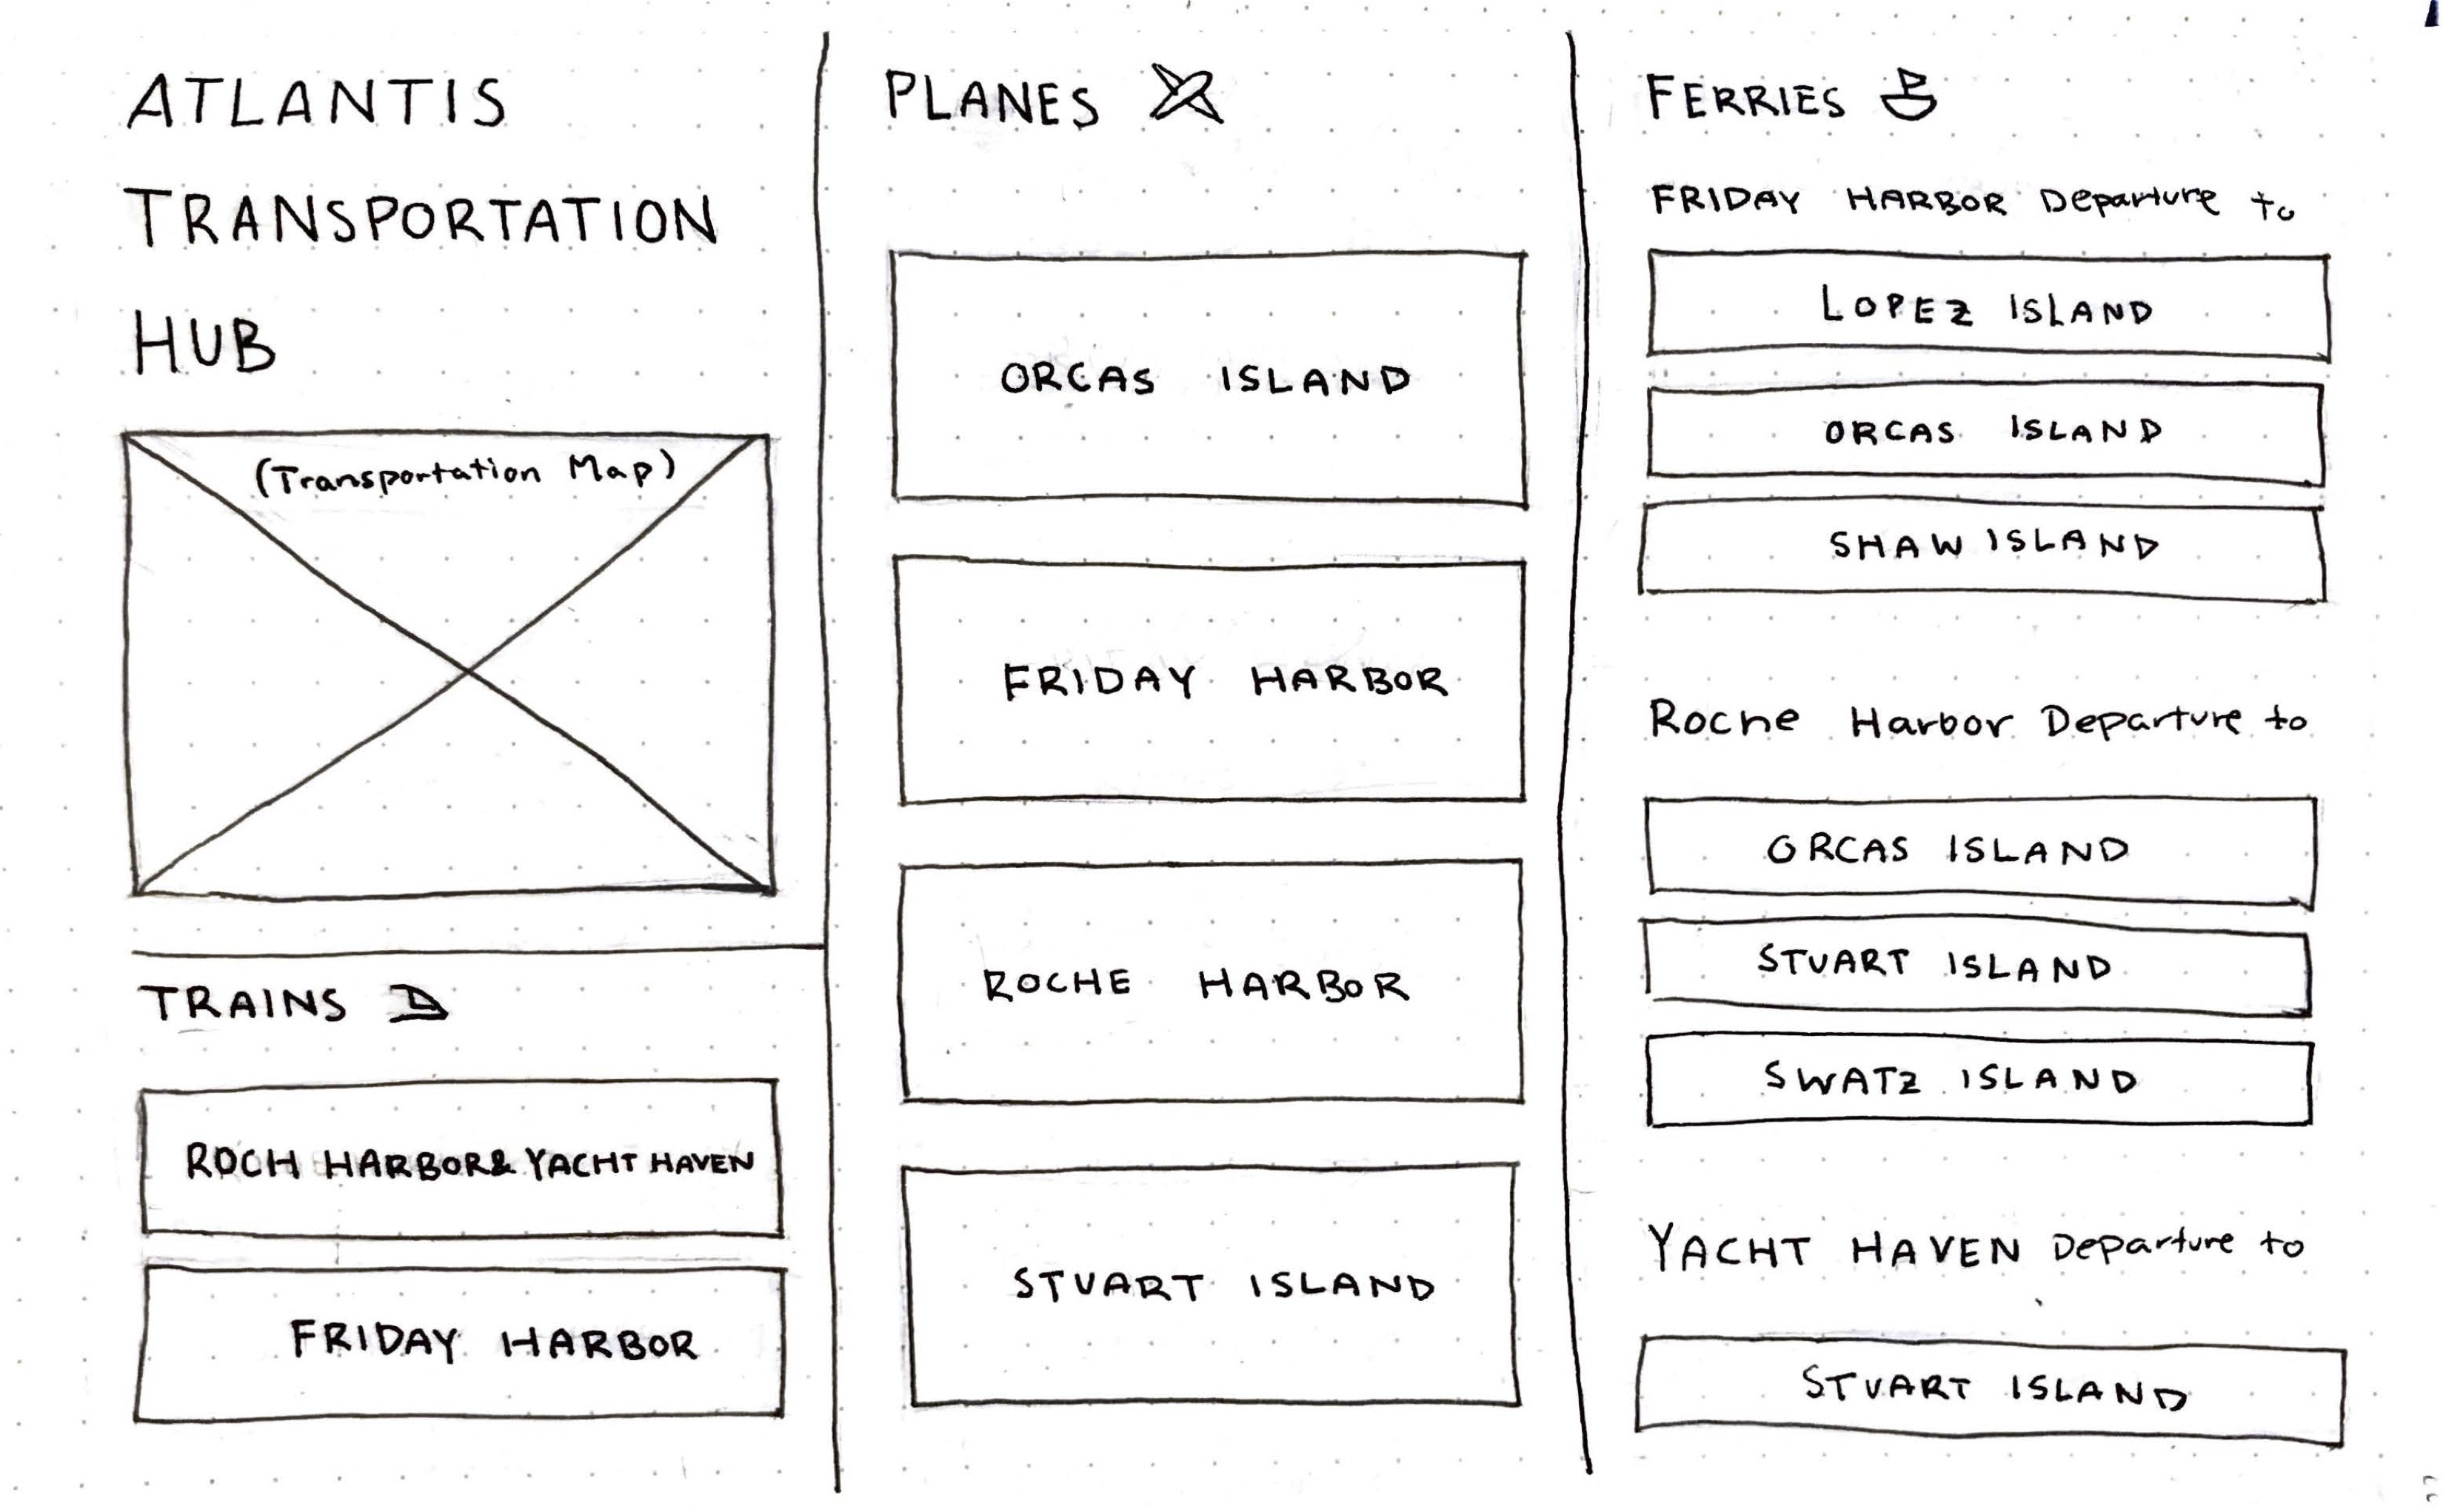 ATLANTIS
TRANSPORTATION
HUB
(Transportation Map)
TRAINS
ROCH HARBOR & YACHT HAVEN
FRIDAY HARBOR
PLANES
ORCAS ISLAND
FRIDAY HARBOR
ROCHE HARBOR
STUART ISLAND
FERRIES
FRIDAY HARBOR Departure to
LOPEZ ISLAND
ORCAS ISLAND
SHAW ISLAND
Roche Harbor Departure to
ORCAS ISLAND
STUART ISLAND
SWATZ ISLAND
YACHT HAVEN Departure to
STUART ISLAND